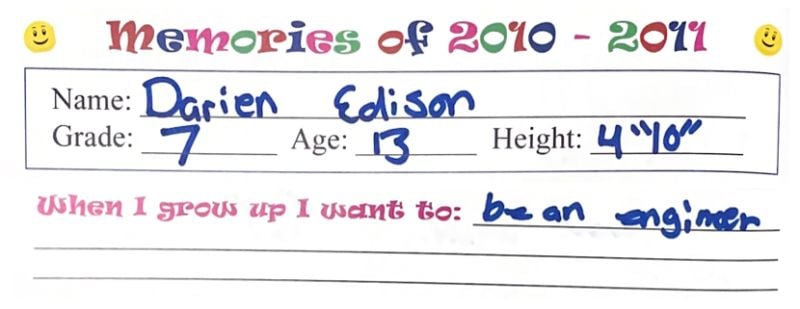 Memories of 2010 - 2011
Name: Darien Edison
Grade: 7 Age: 13 Height: 4"10"
When I grow up I want to: be an enginer